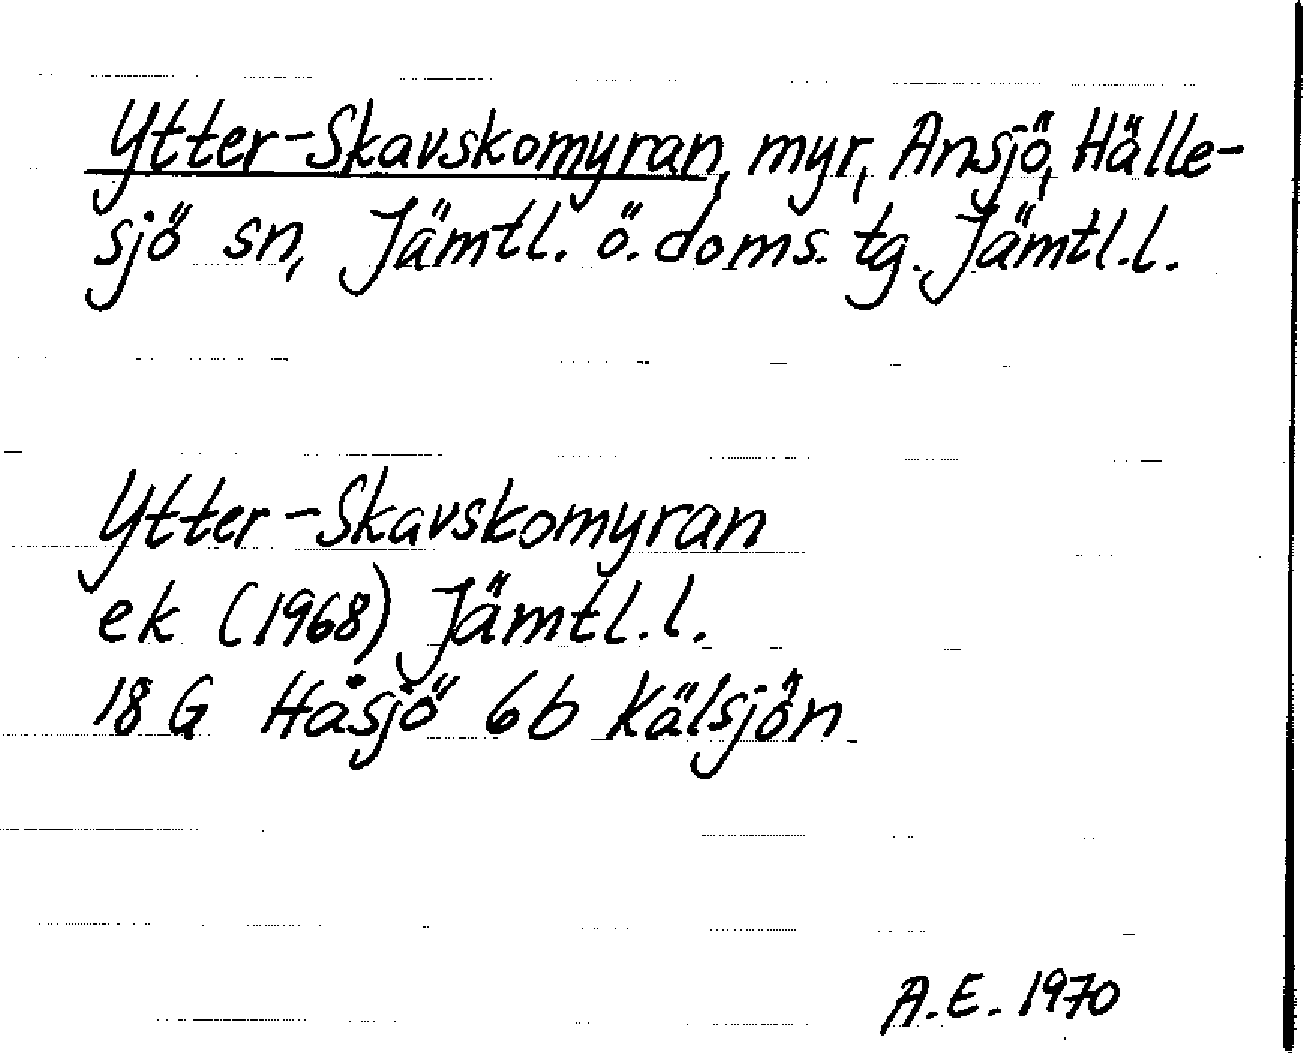 Ytter-Skavskomyran, myr, Ansjö, Hälle-
sjö sn, Jämtl. ö. doms. tg. Jämtl.l.
Ytter-Skavskomyran
ek (1968) Jämtl.l.
18 G Håsjö 6b Kälsjön
A.E. 1970